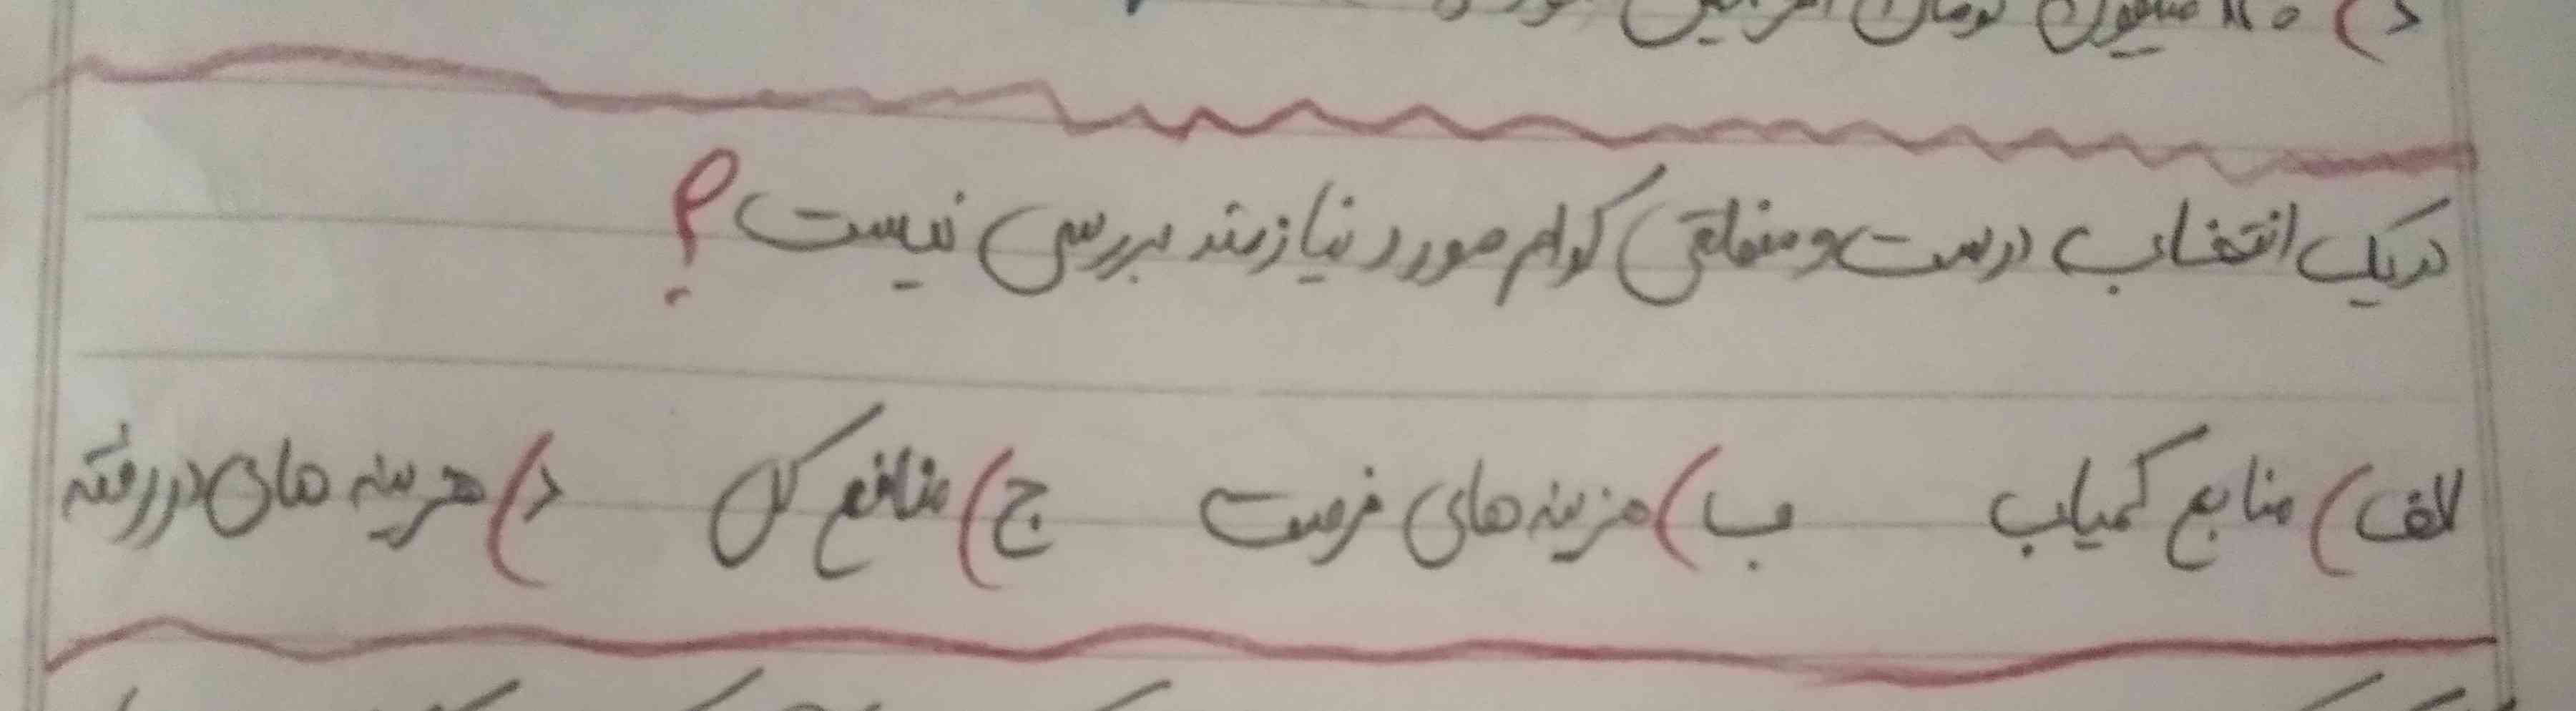 د) ۸۰ میلیون تومان
در یک انتخاب درست و منطقی کدام مورد نیازمند بررسی نیست؟
الف) منابع کمیاب ب) هزینه های فرصت ج) منافع کل د) هزینه های دررفته